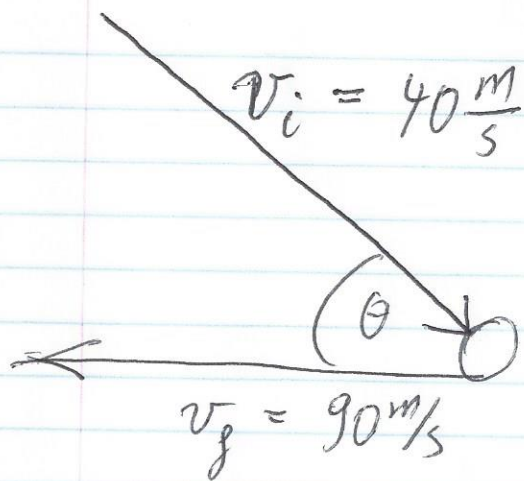 v_i = 40 m/s
θ
v_f = 90 m/s